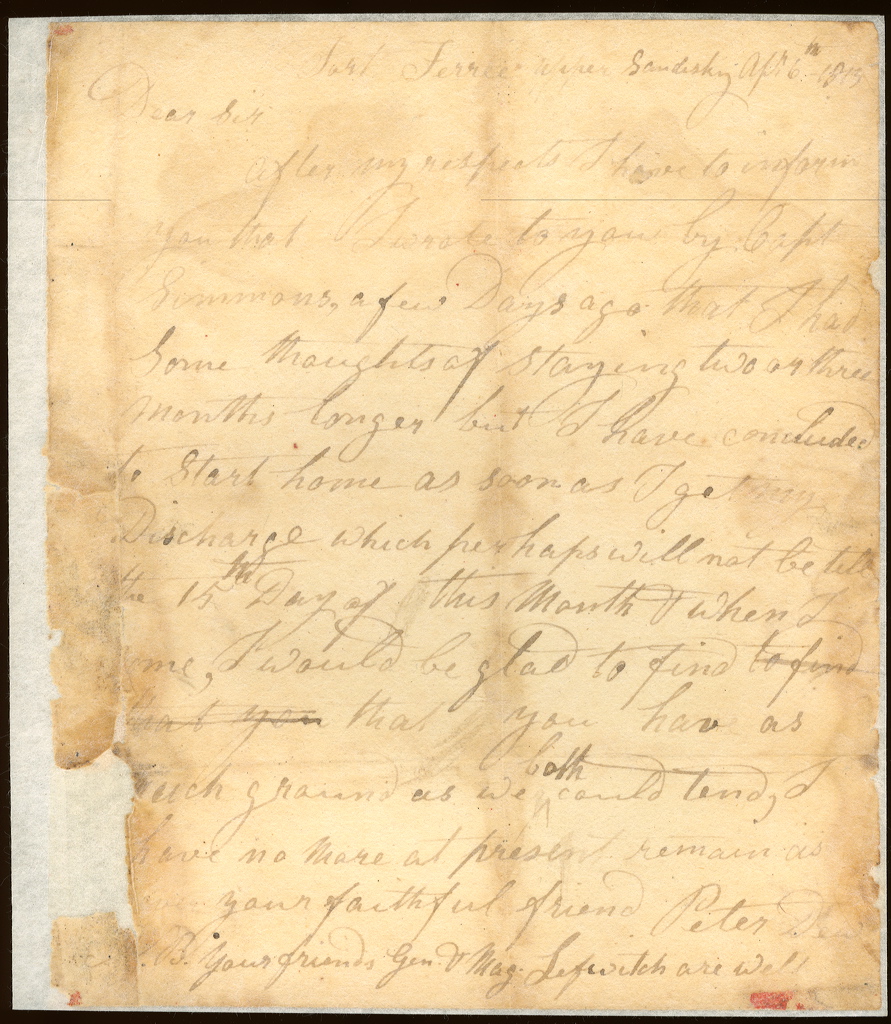 Fort Ferree upper Sandusky Apr 6th 1813
Dear Sir
after my respects I have to inform
you that I wrote to you by Capt
Simmons, a few Days ago that I had
Some thoughts of staying two or three
months longer but I have concluded
to Start home as soon as I get my
Discharge which perhaps will not be till
the 15th Day of this Month & when I
ome, I would be glad to find to find
that you that you hav as
much ground as we both could tend, I
have no more at present remain as
your faithful friend Peter
B. Your friends Gen & Mag. Lefwitch are well